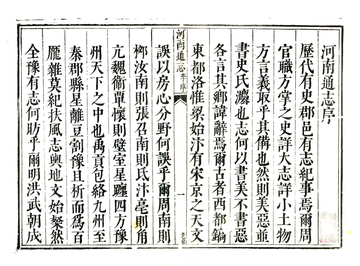 河南通志序
歷代有史郡邑有志紀事焉爾周
官職方掌之史詳大志詳小土物
方言義取乎其偹也然則美惡並
書史氏灋也志何以書美不書惡
各言其鄉諱辭焉爾古者西都鎬
東都洛惟梁始汴有宋京之天文
河南通志
序
一
誤以房心分野何誤乎爾周南則
郟汝南則張召南則氐汴亳則角
亢魏衞單懷則壁室星躔四方豫
州天下之中也禹貢包絡九州至
秦郡縣星離豆割豫且析而爲百
厖雜莫紀扶風志輿地文始燦然
全豫有志何昉乎爾明洪武朝成